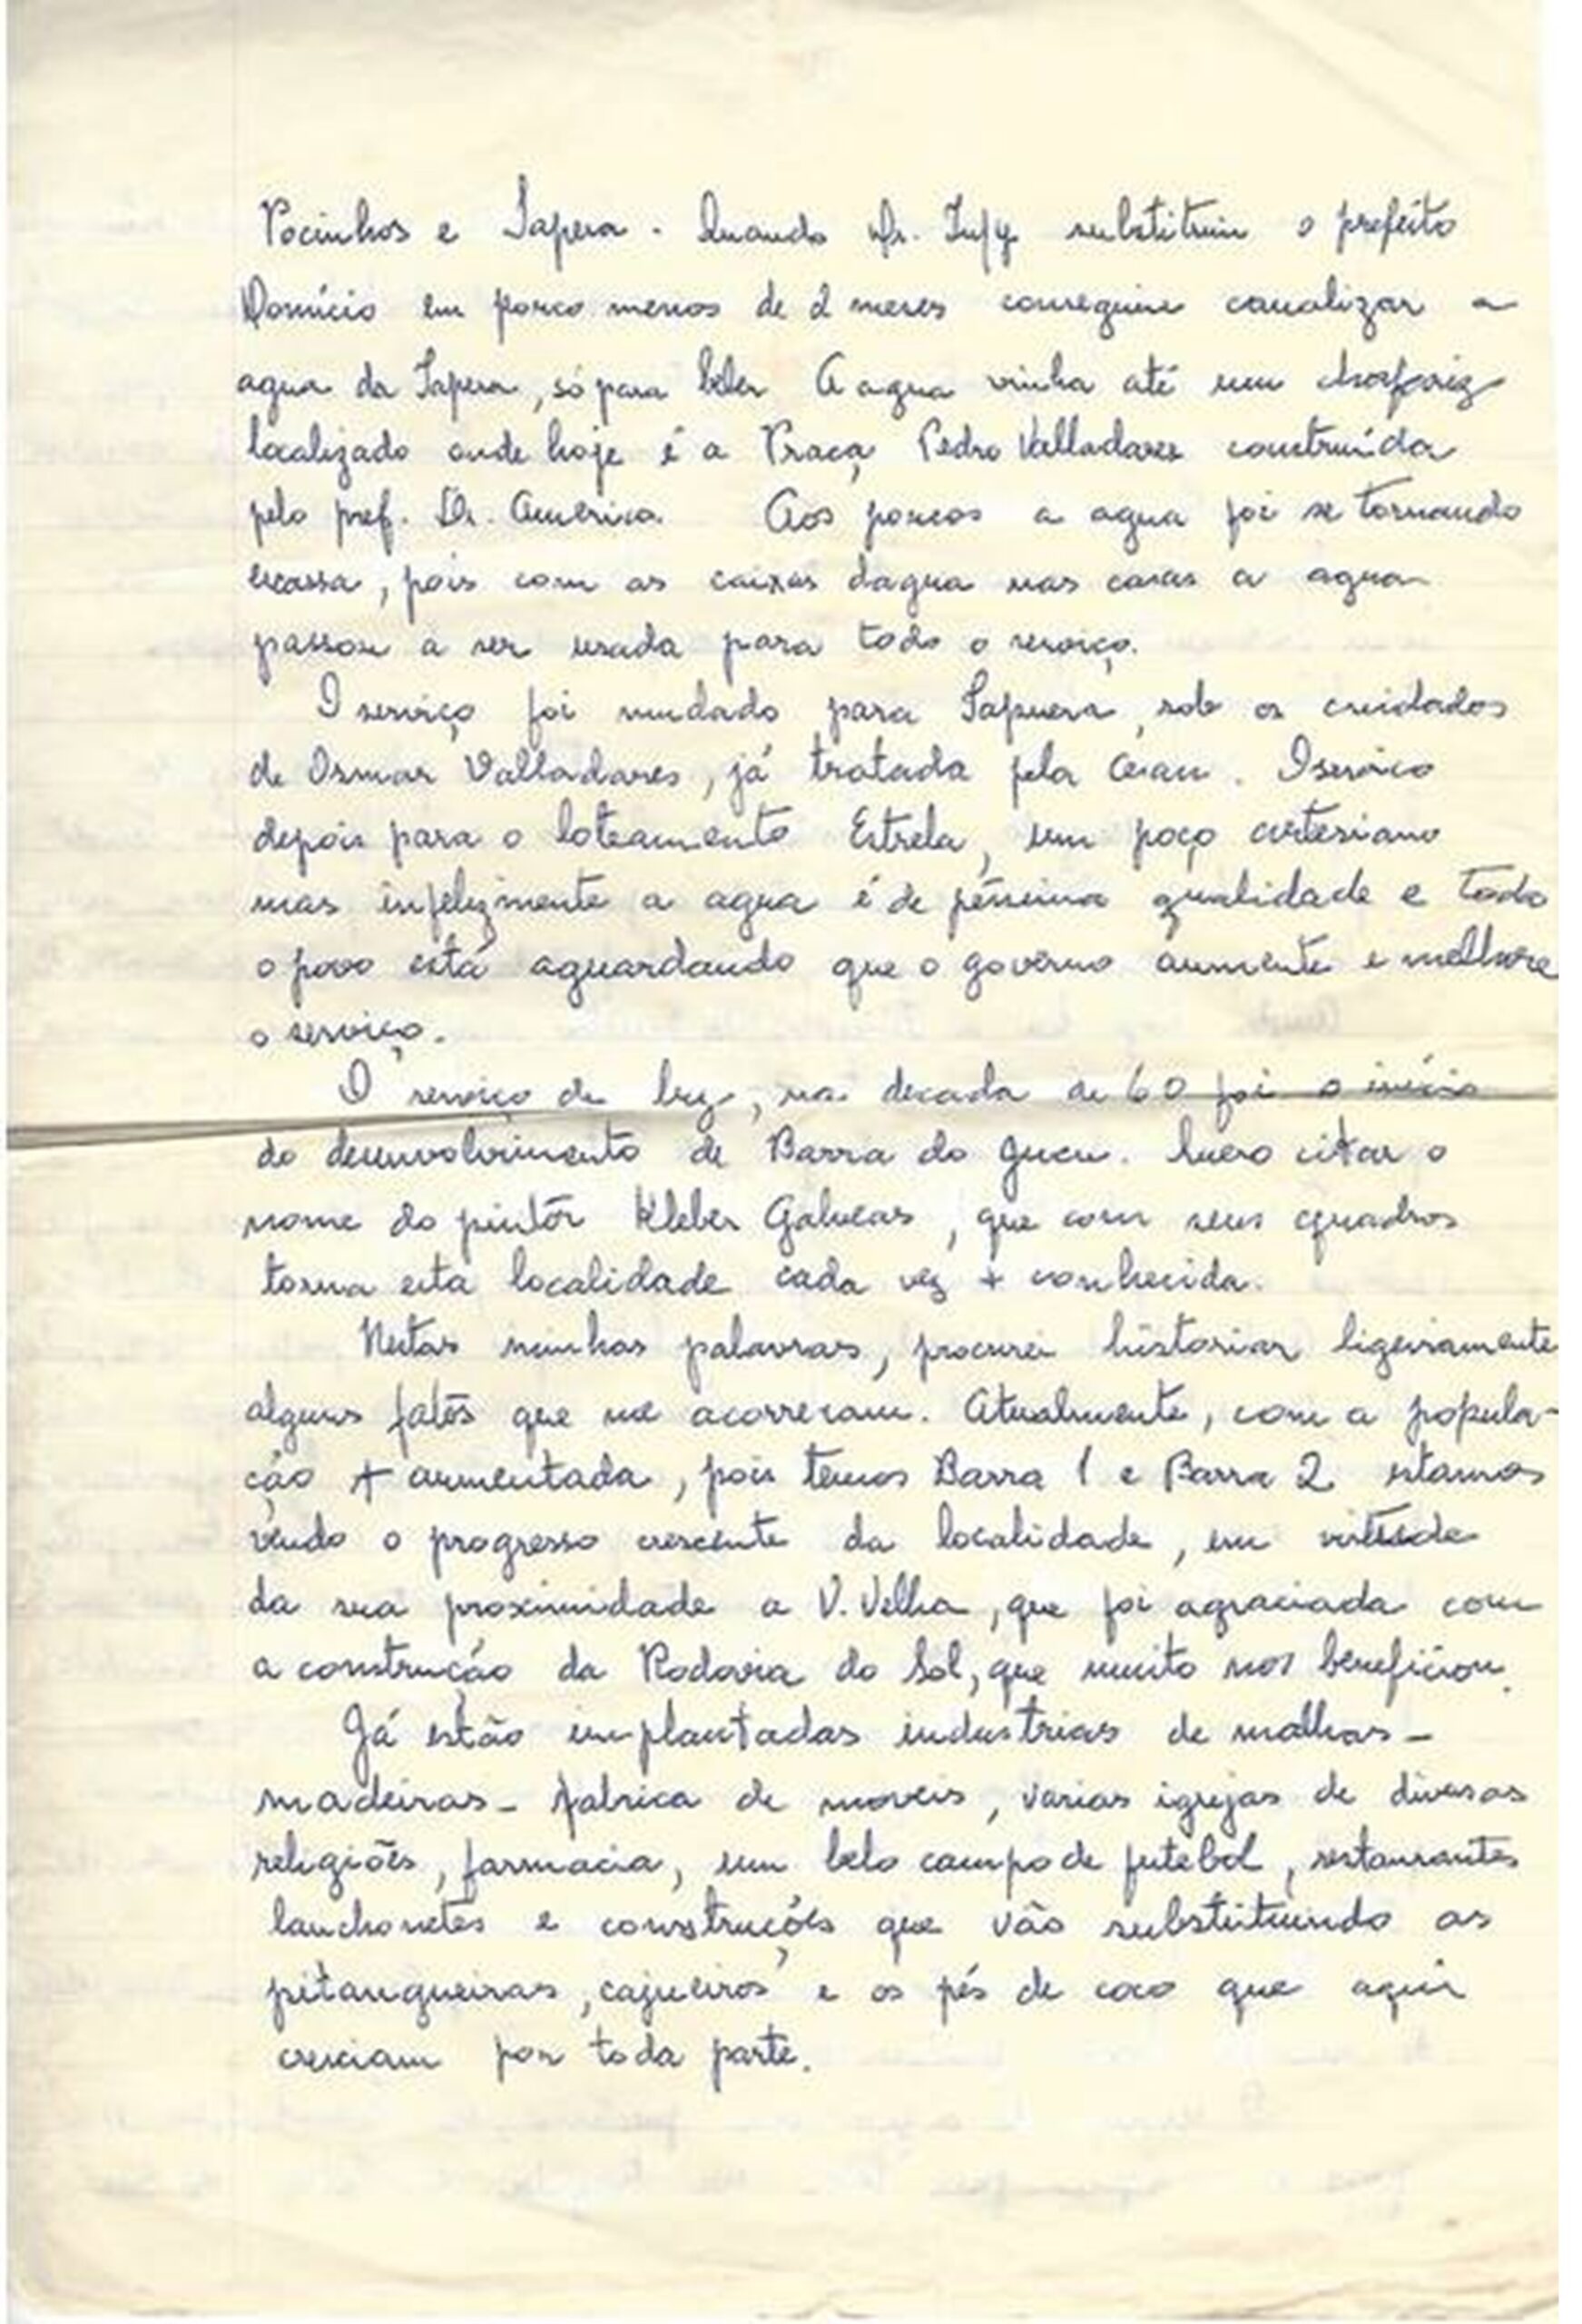 Pocinhos e Tapera. Quando Dr. Tufy substituiu o prefeito
Domício em pouco menos de 2 meses conseguiu canalizar a
agua da Tapera, só para beber A agua vinha até um chafariz
localizado onde hoje é a Praça Pedro Valladares construída
pelo pref. Dr. Américo. Aos poucos a agua foi se tornando
escassa, pois com as caixas dagua nas casas a agua
passou a ser usada para todo o serviço.
O serviço foi mudado para Tapuera, sob os cuidados
de Osmar Valladares, já tratada pela Cesan. O serviço
depois para o loteamento Estrela, um poço artesiano
mas infelizmente a agua é de péssima qualidade e todo
o povo está aguardando que o governo aumente e melhore
o serviço.
O serviço de luz, na decada de 60 foi o início
do desenvolvimento de Barra do Jucu. Quero citar o
nome do pintôr Kleber Galveas, que com seus quadros
torna esta localidade cada vez + conhecida.
Nestas minhas palavras, procurei historiar ligeiramente
alguns fatos que me acorreram. Atualmente, com a popula-
ção + aumentada, pois temos Barra 1 e Barra 2 estamos
vendo o progresso crescente da localidade, em virtude
da sua proximidade a V. Velha, que foi agraciada com
a construção da Rodovia do Sol, que muito nos beneficiou.
Já estão implantadas industrias de malhas -
madeiras - fabrica de moveis, varias igrejas de diversas
religiões, farmacia, um belo campo de futebol, restaurantes
lanchonetes e construções que vão substituindo as
pitangueiras, cajueiros e os pés de coco que aqui
cresciam por toda parte.